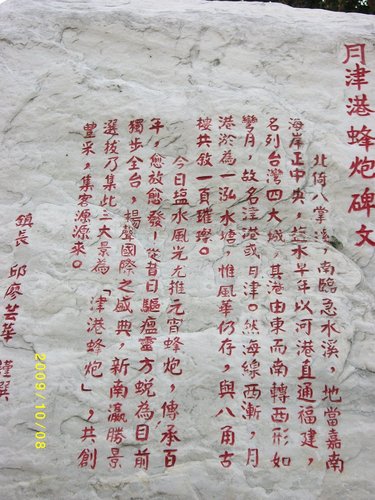 月津港蜂炮碑文
北倚八掌溪,南臨急水溪,地當嘉南
海岸正中央,鹽水早年以河港直通福建,
名列台灣四大城,其港由東而南轉西形如
彎月,故名洼港或月津。然海線西漸,月
港淤為一泓水塘,惟風華仍存,與八角古
樓共敘一頁璀璨。
今日鹽水風光尤推元宵蜂炮,傳承百
年,愈放愈發!從昔日驅瘟靈方蛻為目前
獨步全台,揚聲國際之盛典,新南瀛勝景
選拔乃集此三大景為「津港蜂炮」,共創
豐采,集客源源來。
鎮長 邱廖芸華 謹撰
2009/10/08